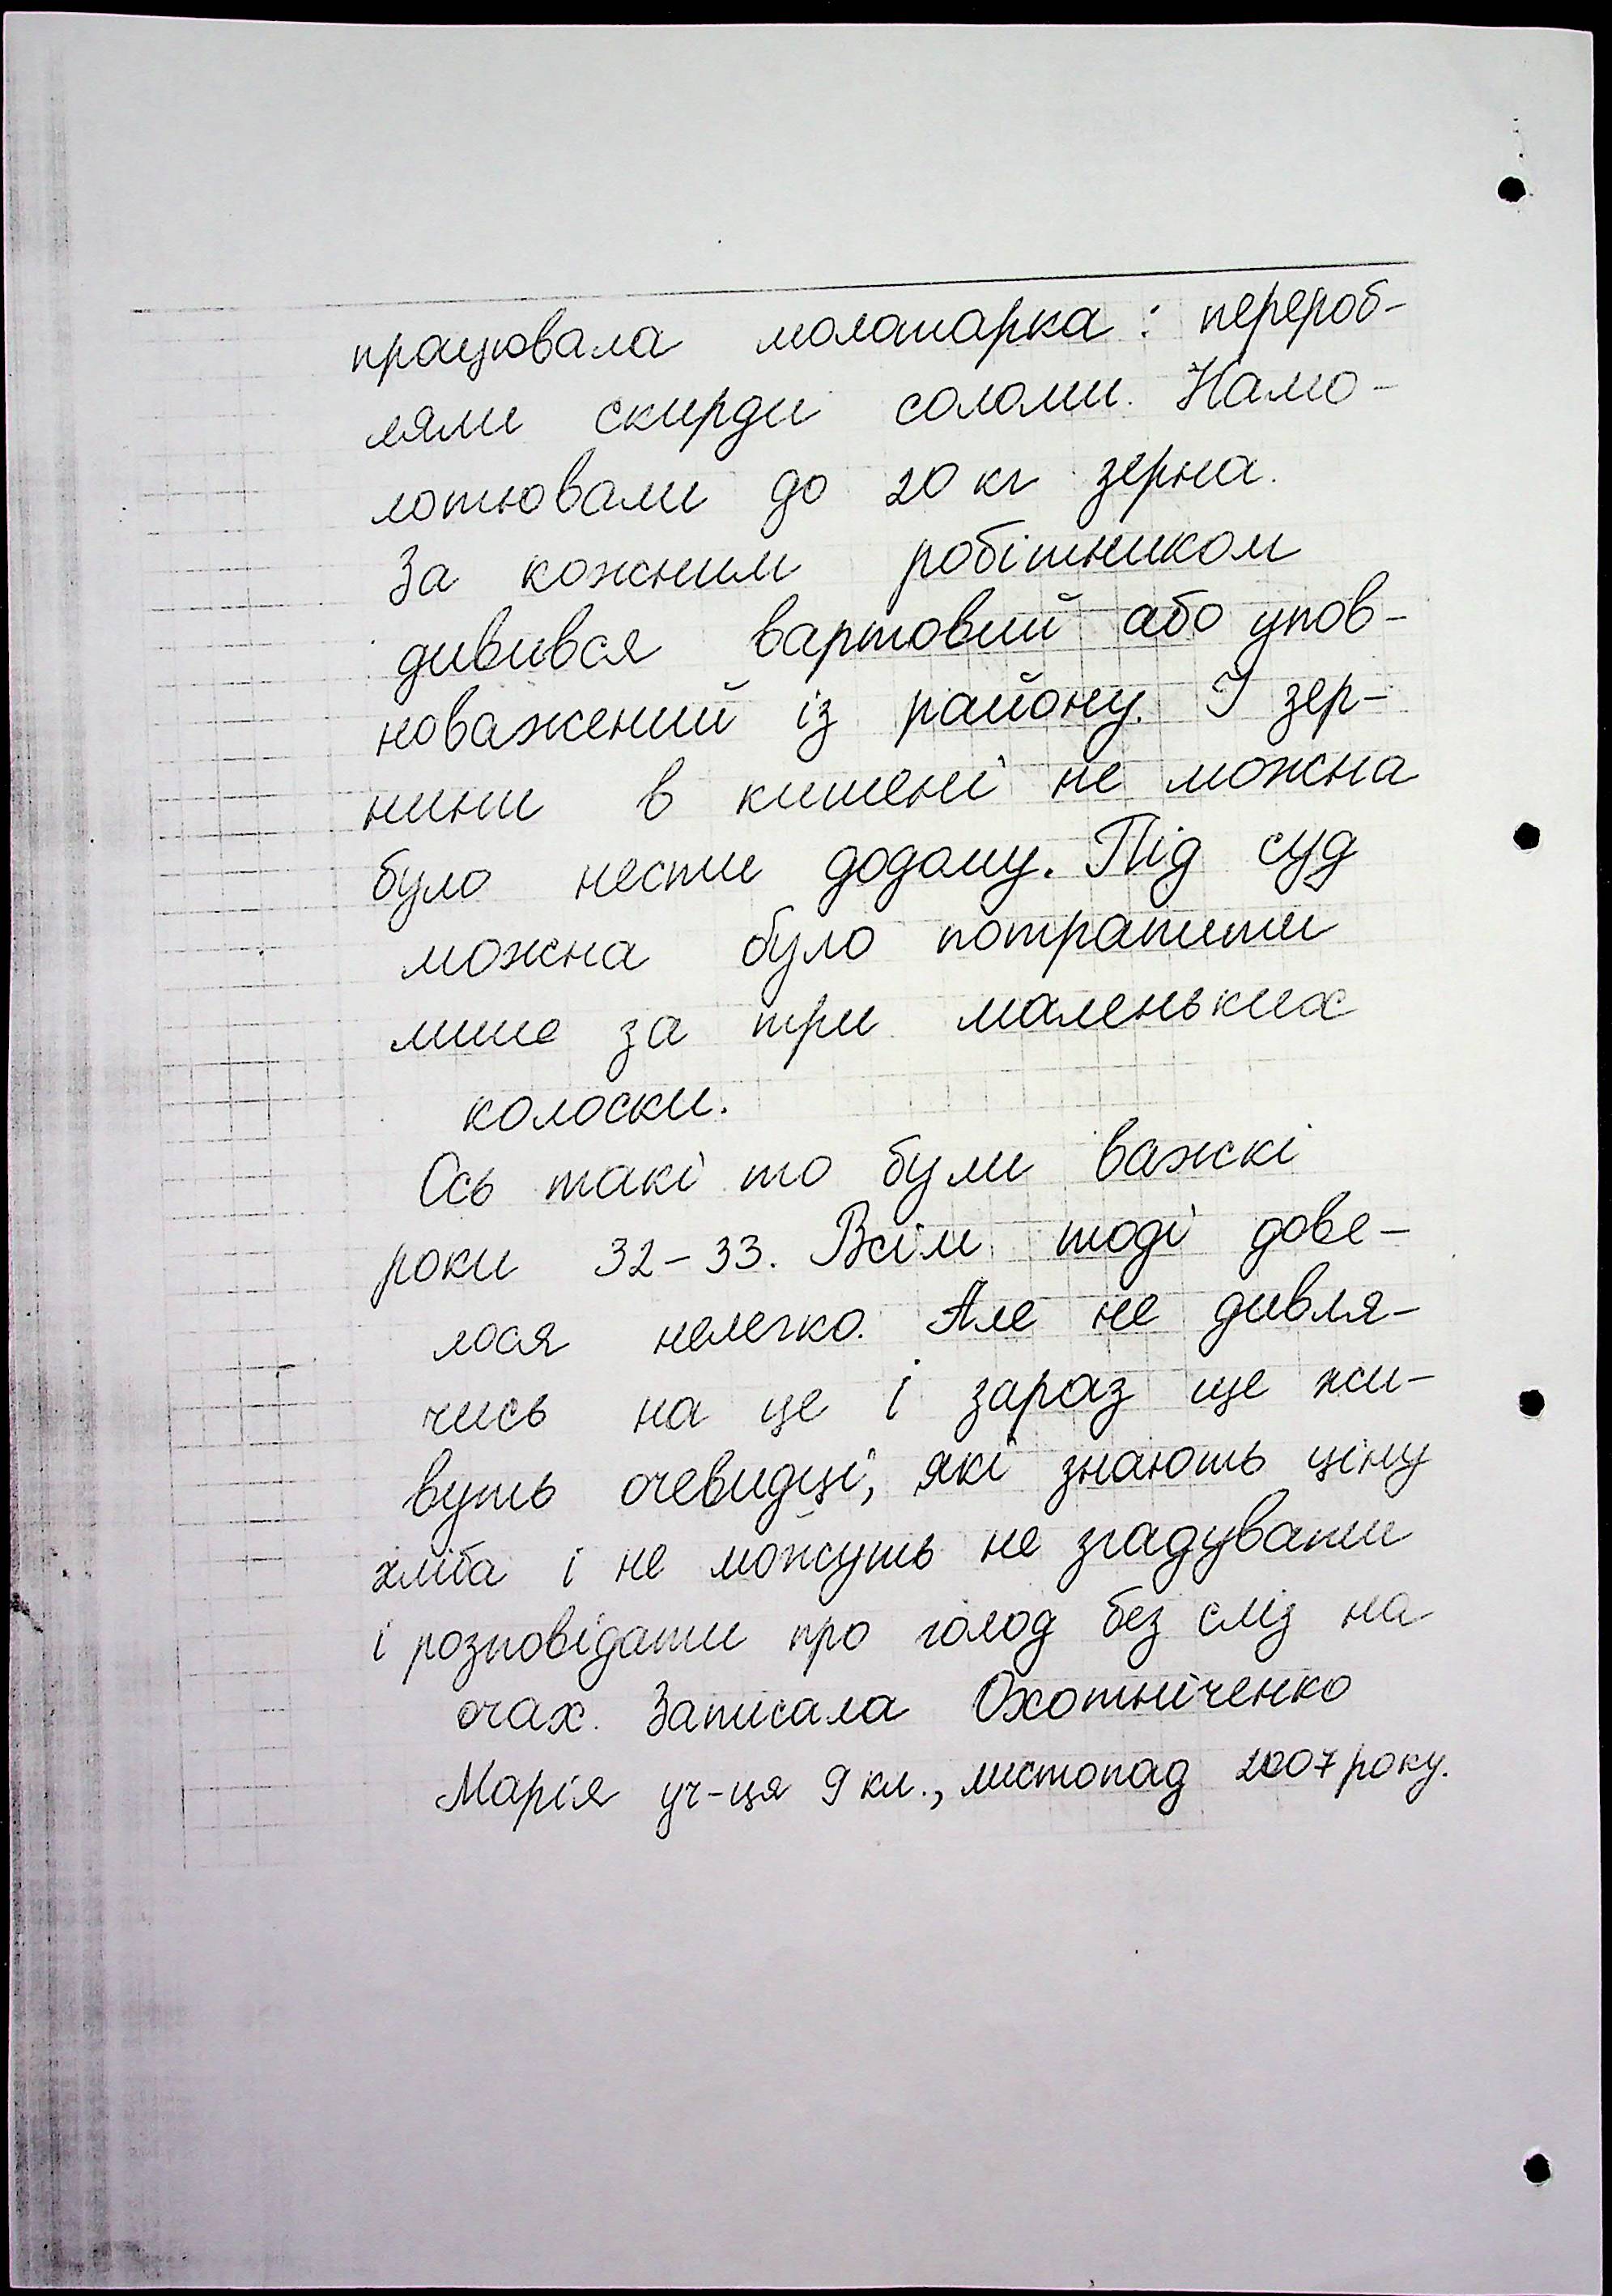 працювала молотарка: перероб-
ляли скирди соломи. Намо-
лотювали до 20 кг зерна.
За кожним робітником
дивився вартовий або упов-
новажений із району. І зер-
нини в кишені не можна
було нести додому. Під суд
можна було потрапити
лише за три маленьких
колоски.
Ось такі то були важкі
роки 32-33. Всім тоді дове-
лося нелегко. Але не дивля-
чись на це і зараз ще жи-
вуть очевидці, які знають ціну
хліба і не можуть не згадувати
і розповідати про голод без сліз на
очах. Записала Охотніченко
Марія уч-ця 9 кл., листопад 2007 року.